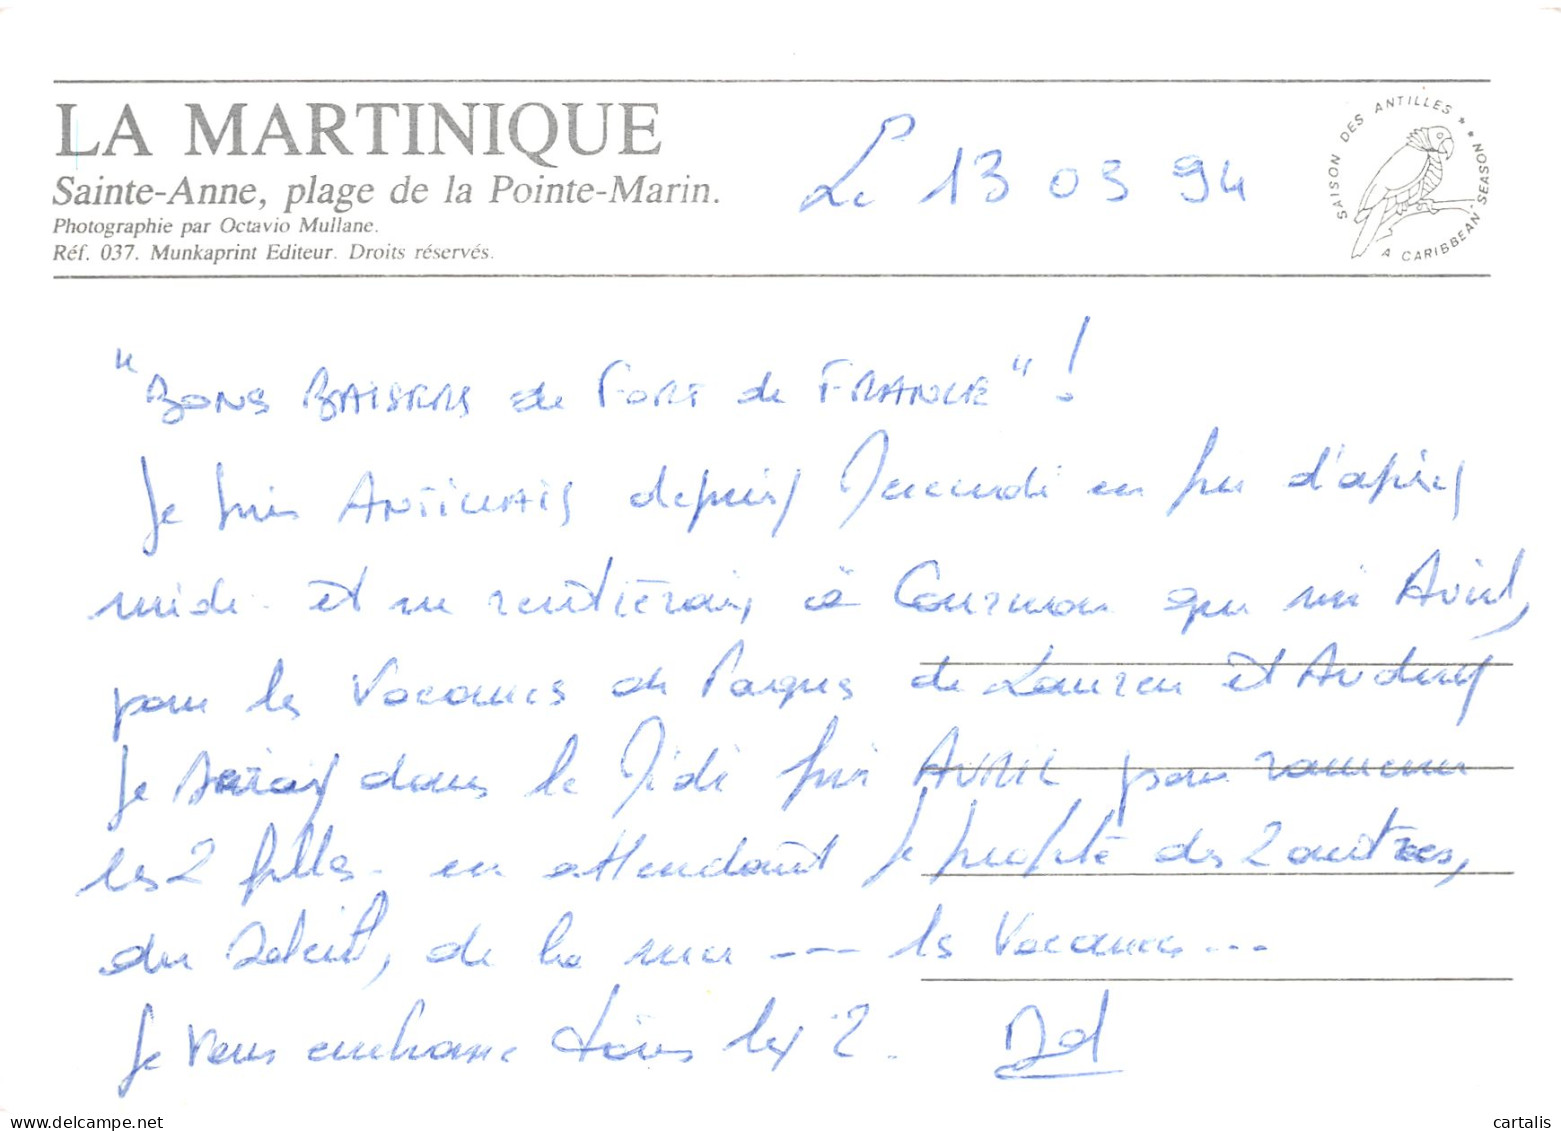 LA MARTINIQUE
Sainte-Anne, plage de la Pointe-Marin.
Photographie par Octavio Mullane.
Réf. 037. Munkaprint Editeur. Droits réservés.
Le 13 03 94
SAISON DES ANTILLES
A CARIBBEAN SEASON
"BONS BAISERS de FORT de FRANCE" !
Je suis ANTILLAIS depuis Vendredi en fin d'après
midi et ne rentrerai à que mi Avril,
pour les Vacances de Paques de Lauren et Audrey
Je serai dans le Midi fin AVRIL pour ramener
les 2 filles - en attendant je profite des 2 autres,
du Soleil, de la mer --- les Vacances ---
Je vous embrasse tous les 2.
cartalis